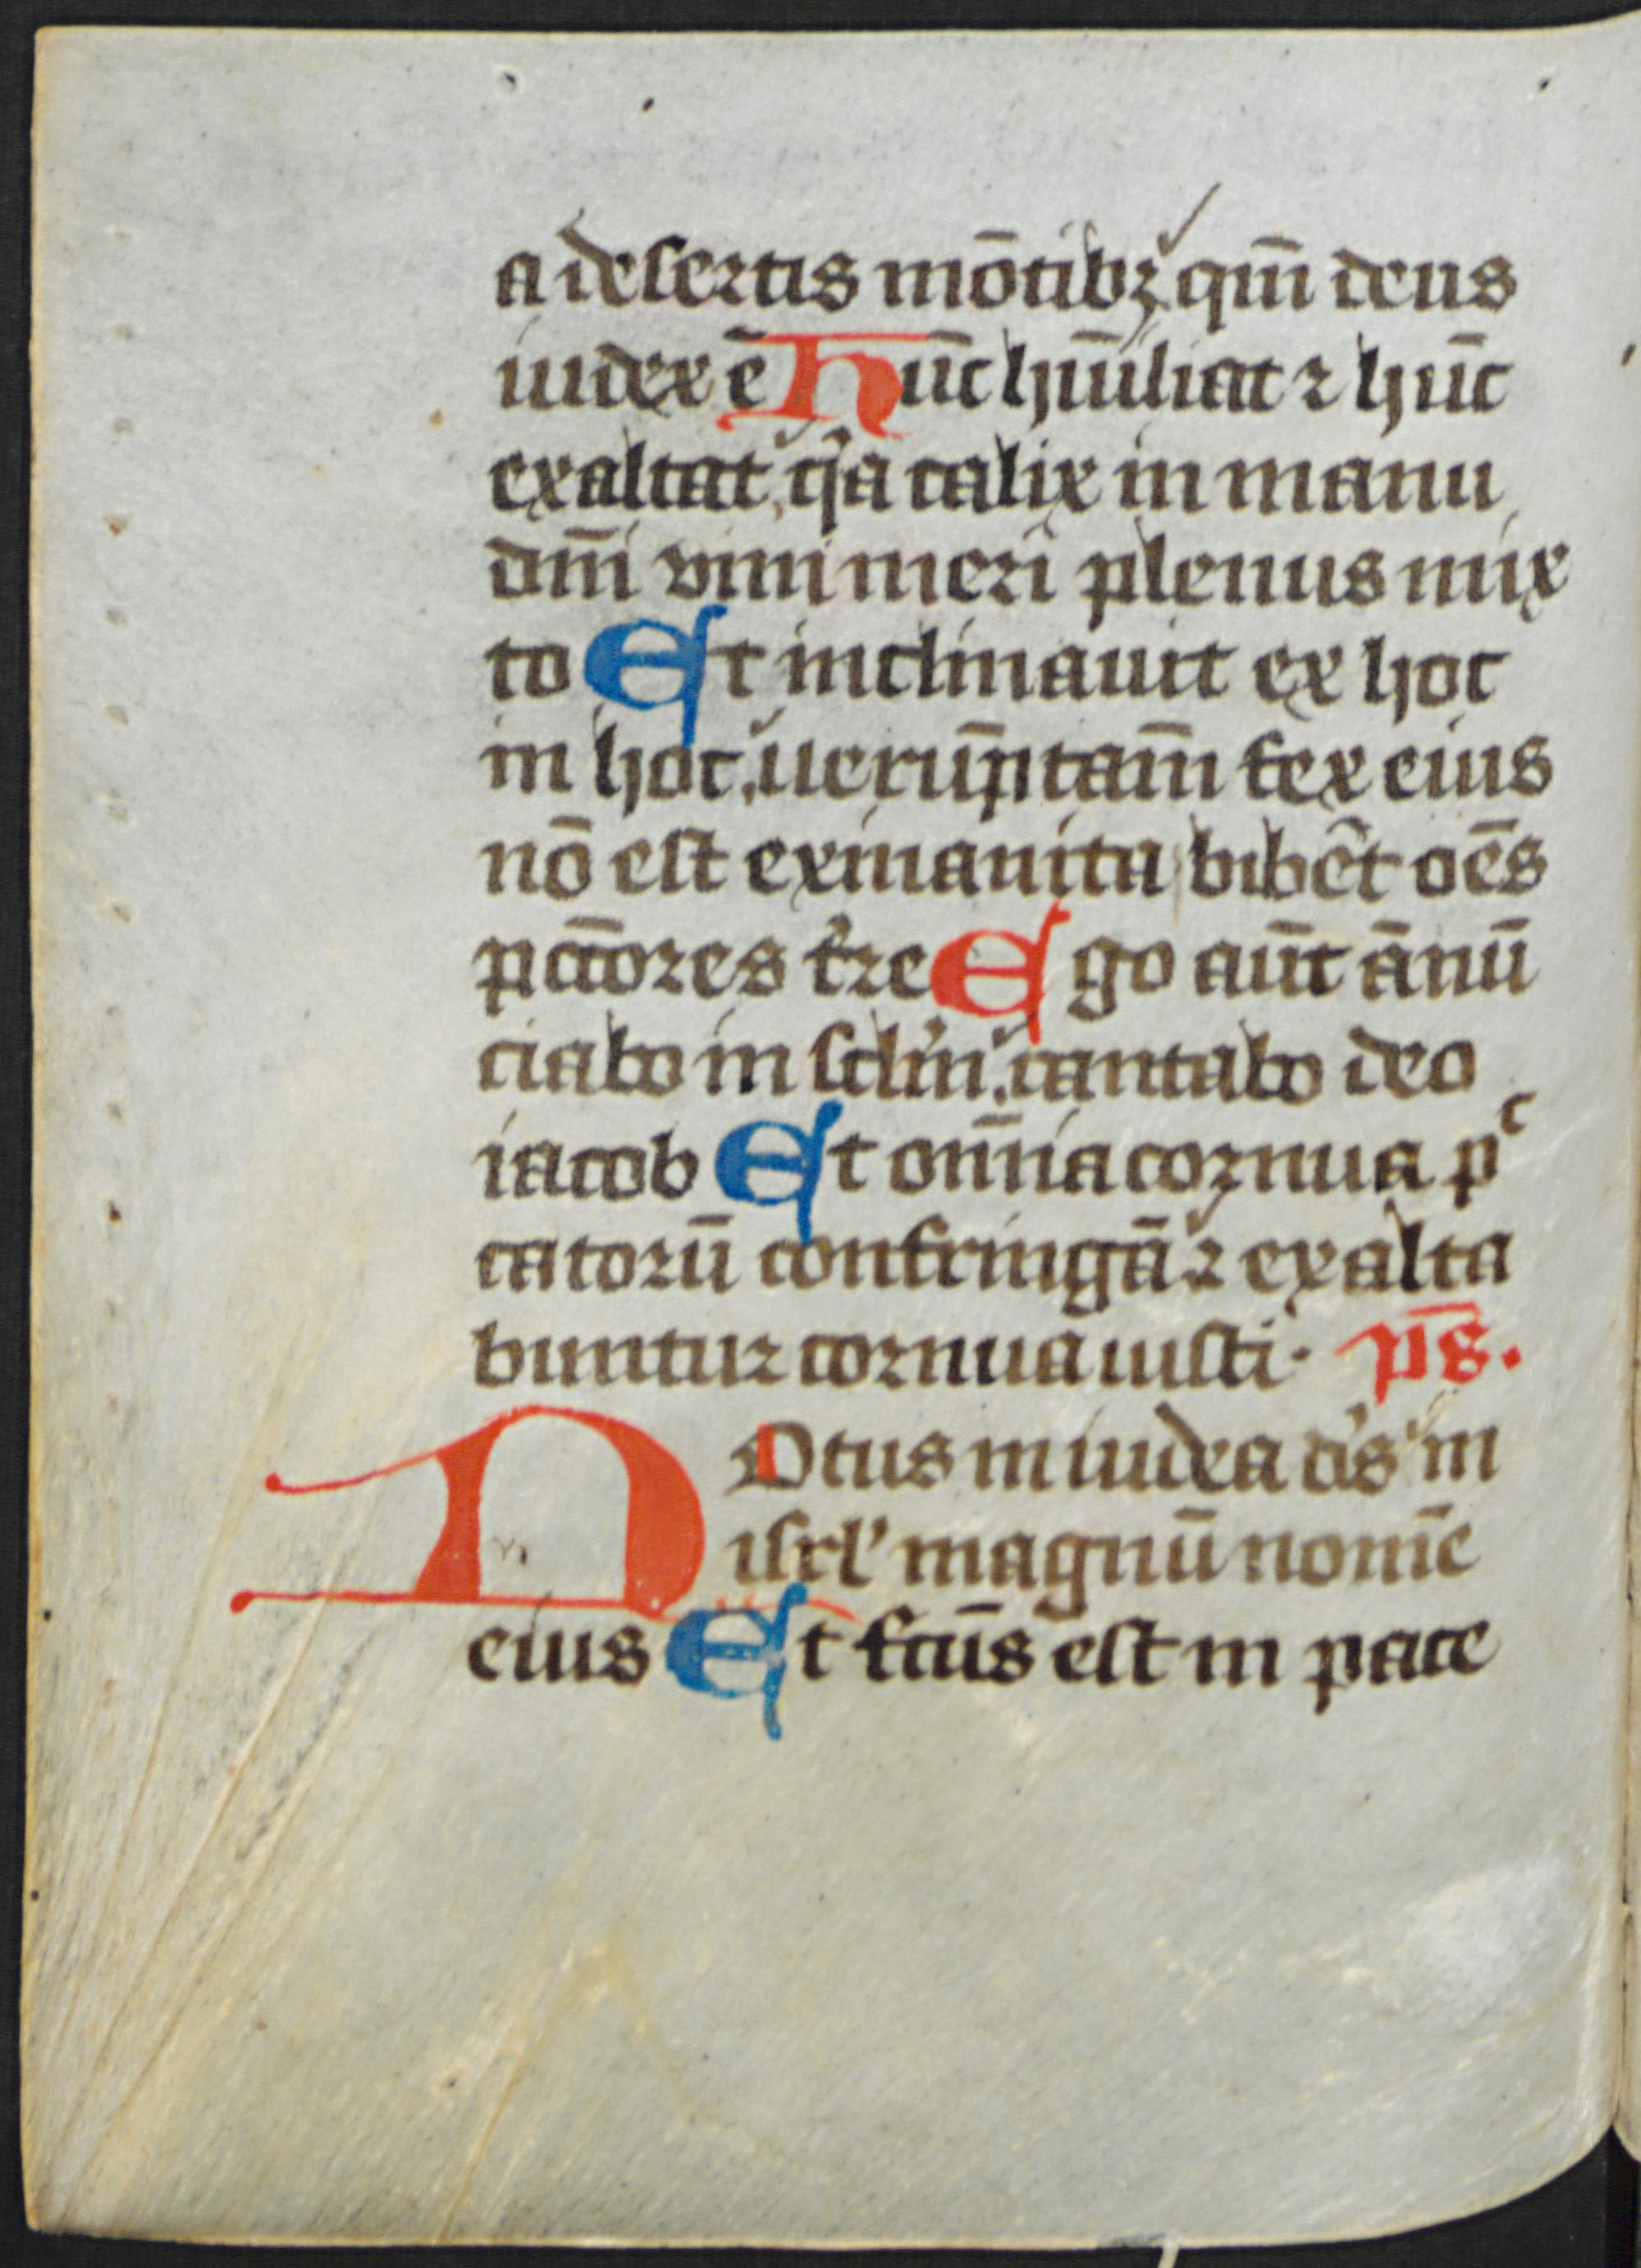 a desertis mōtibꝫ qm̄ deus
iudex ē Hūc hūiliat ⁊ hūc
exaltat, qͥa calix in manu
dn̄i vini meri plenus mix
to Et inclinauit ex hoc
in hoc, uerūptam̄ fex eius
nō est exinanita bibēt oēs
pctōres tr̄re Ego aūt ānū
ciabo in sclm̄, cantabo deo
iacob Et om̄ia cornua pᶜ
catorū confringā ⁊ exalta
buntur cornua iusti. ps̄.
NOtus in iudea ds̄ in
isrl' magnū nomē
eius Et fctūs est in pace